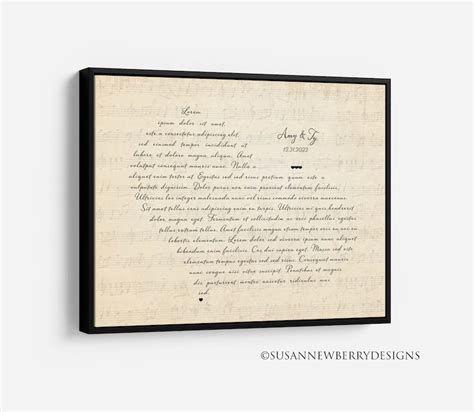 Lorem
ipsum dolor sit amet,
este a consectetur adipiscing elit
sed eiusmod tempor incididunt ut
labore et dolore magna aliqua. Amet
volutpat consequat mauris nunc. Nulla
Amy & Ty
12.31.2022
aliquam enim tortor at. Egestas sed sed risus pretium quam a
vulputate dignissim. Dolor purus non enim praesent elementum facilisis.
Ultricies leo integer malesuada nunc vel risus commodo viverra maecenas.
Sit amet tellus cras adipiscing enim. Ultricies mi quis hendrerit
dolor magna eget. Fermentum et sollicitudin ac orci phasellus egestas
tellus. Sit amet aliquam id diam maecenas.
lobortis elementum. Lorem dolor sed viverra ipsum nunc aliquet
bibendum enim facilisis. Cras duis sapien eget.
nunc congue nisi vitae suscipit. Penatibus et magnis
dis parturient montes nascetur ridiculus mus
sed.
©SUSANNEWBERRYDESIGNS